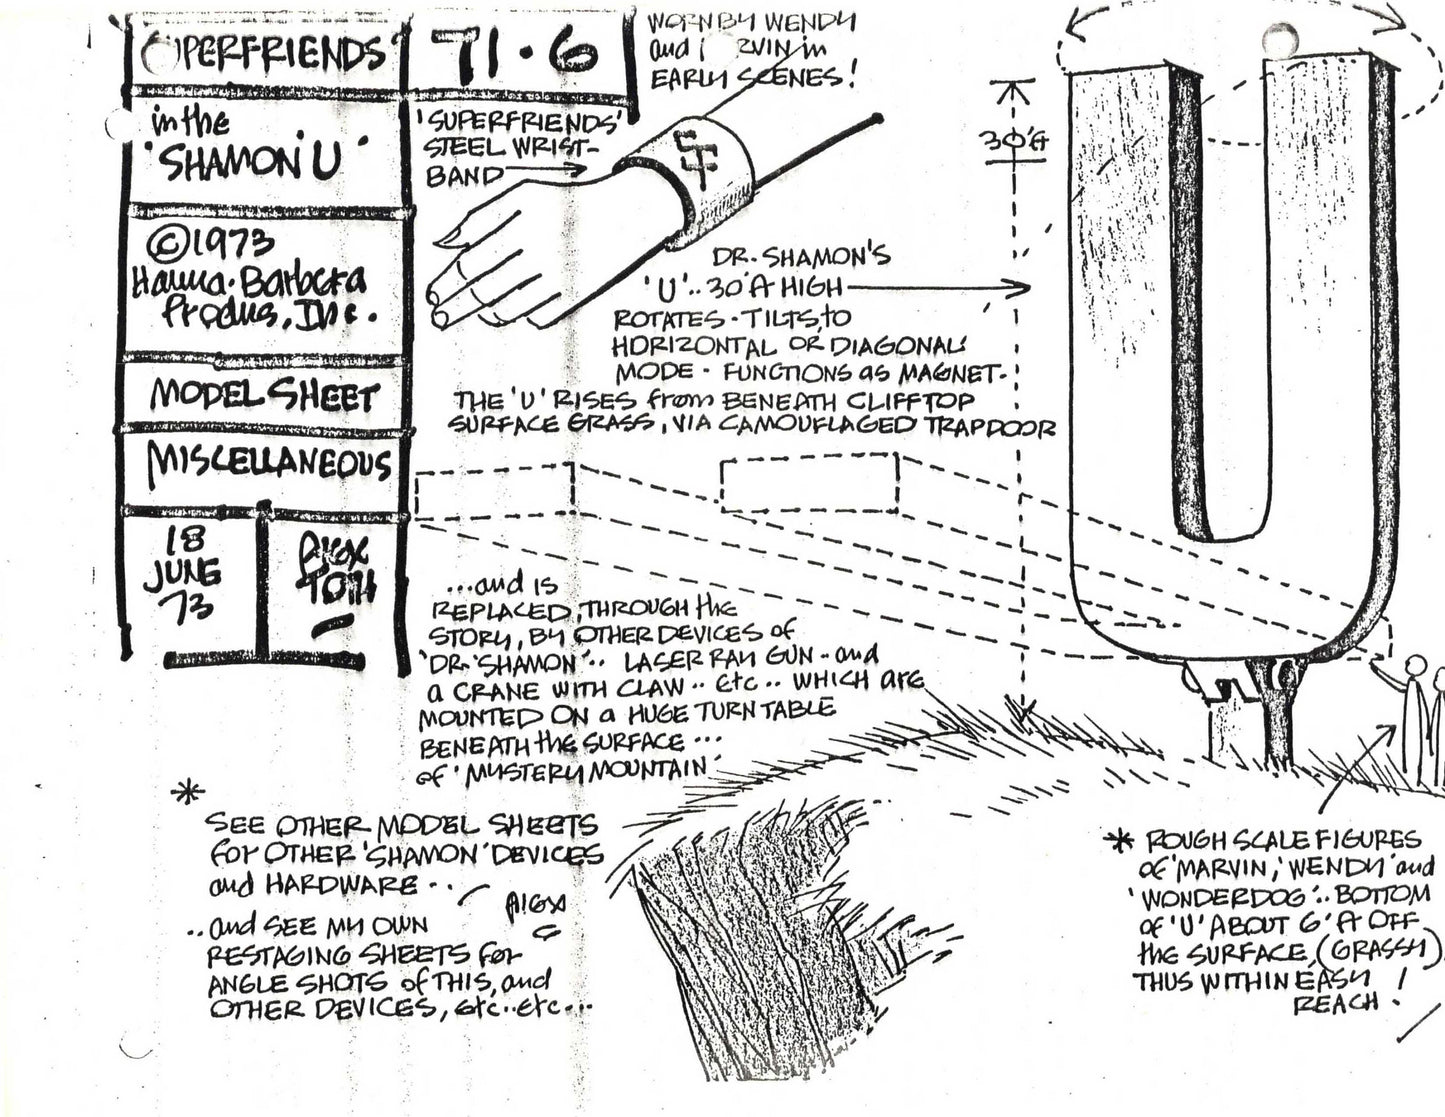 SUPERFRIENDS'
71·6
in the
'SHAMON 'U'
©1973
Hanna·Barbera
Produs, Inc.
MODEL SHEET
MISCELLANEOUS
18
JUNE
73
Alex
TOTH
WORN BY WENDY
and MARVIN in
EARLY SCENES!
'SUPERFRIENDS'
STEEL WRIST-
BAND
SF
30'ft
DR. SHAMON'S
'U'.. 30'ft HIGH
ROTATES · TILTS, to
HORIZONTAL OR DIAGONAL
MODE · FUNCTIONS as MAGNET ·
THE 'U' RISES from BENEATH CLIFFTOP
SURFACE GRASS, VIA CAMOUFLAGED TRAPDOOR
...and IS
REPLACED, THROUGH the
STORY, BY OTHER DEVICES of
'DR. 'SHAMON'.. LASER RAY GUN .. and
a CRANE WITH CLAW .. etc .. WHICH are
MOUNTED ON a HUGE TURNTABLE
BENEATH the SURFACE ...
of 'MYSTERY MOUNTAIN'
*
SEE OTHER MODEL SHEETS
for OTHER 'SHAMON' DEVICES
and HARDWARE ..
Alex
..and SEE MY OWN
RESTAGING SHEETS for
ANGLE SHOTS of THIS, and
OTHER DEVICES, etc..etc...
* ROUGH SCALE FIGURES
of 'MARVIN,' 'WENDY' and
'WONDERDOG'.. BOTTOM
of 'U' ABOUT 6'ft OFF
the SURFACE, (GRASSY)
THUS WITHIN EASY
REACH!